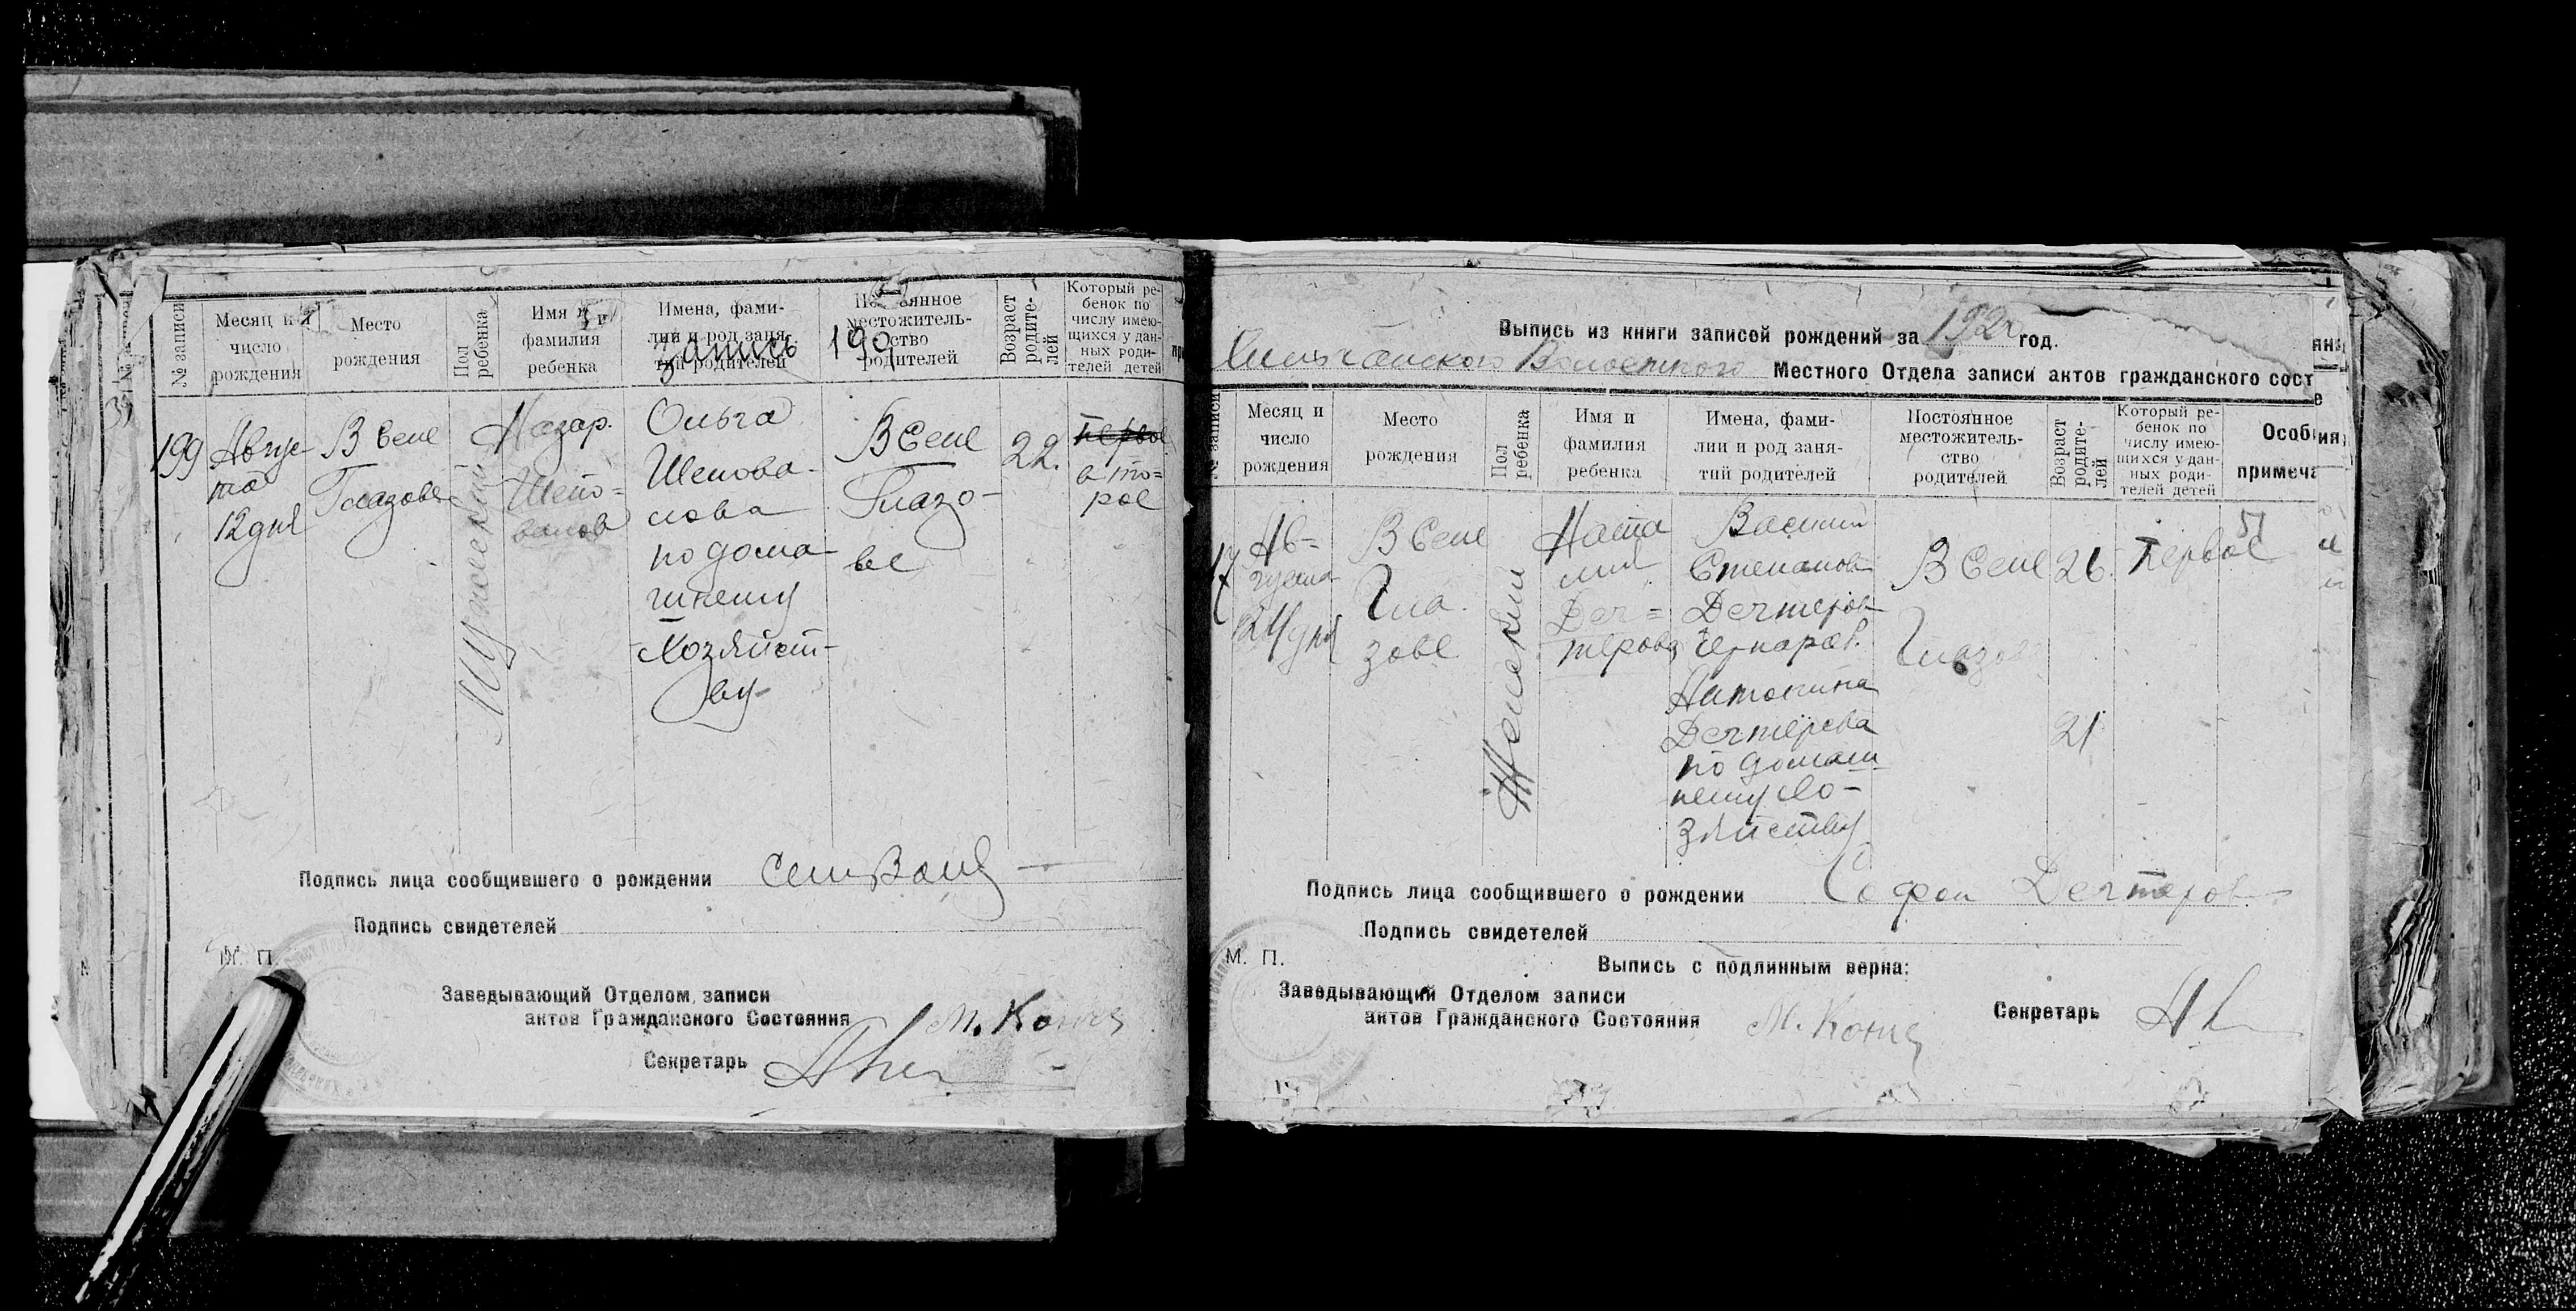 № записи
Месяц и
число
рождения
Место
рождения
Пол
ребенка
Имя и
фамилия
ребенка
Имена, фами-
лии и род заня-
тий родителей
запись 199
Постоянное
местожитель-
ство
родителей
Возраст
родите-
лей
Который ре-
бенок по
числу имею-
щихся у дан-
ных роди-
телей детей
199
Авгус-
та
12 дня
В селе
Глазове
Мужеский
Назар.
Шепо-
валов
Ольга
Шепова-
лова
по дома-
шнему
Хозяйст-
ву
В Селе
Глазо-
ве
22.
первое
вто-
рое
Подпись лица сообщившего о рождении
Подпись свидетелей
М. П.
Заведывающий Отделом записи
актов Гражданского Состояния
М.
Секретарь
Выпись из книги записей рождений за 192 год.
Волостного Местного Отдела записи актов гражданского сост
№ записи
Месяц и
число
рождения
Место
рождения
Пол
ребенка
Имя и
фамилия
ребенка
Имена, фами-
лии и род заня-
тий родителей
Постоянное
местожитель-
ство
родителей
Возраст
родите-
лей
Который ре-
бенок по
числу имею-
щихся у дан-
ных роди-
телей детей
Особ
примеча
Ав-
густа
24 дня
В Селе
Гла-
зове
Женский
Ната
лия
Дег=
терова
Василий
Степанов
Дегтеров
Антонина
Дегтерева
по домаш
нему Хо-
зяйству
В Селе
Глазове
26.
21
Первое
Подпись лица сообщившего о рождении Софон Дегтеров
Подпись свидетелей
М. П.
Выпись с подлинным верна:
Заведывающий Отделом записи
актов Гражданского Состояния
М.
Секретарь